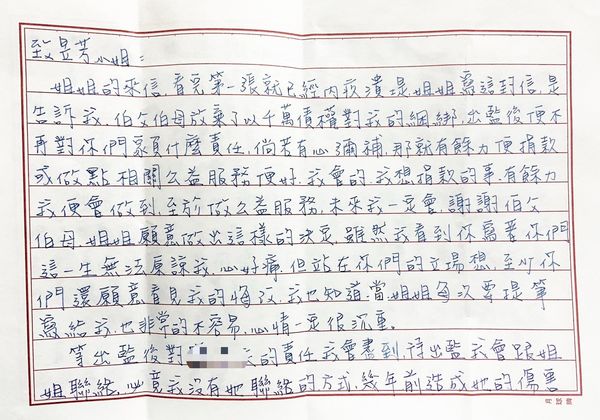 致昱芳小姐:
姐姐的來信,看完第一張就已經內疚潰堤,姐姐寫這封信,是
告訴我,伯父伯母放棄了以千萬債權對我的綑綁,出監後便不
再對你們要負什麼責任,倘若有心彌補,那就有餘力便捐款
或做點相關公益服務便好,我會的,我想捐款的事,有餘力
我便會做到,至於做公益服務,未來我一定會,謝謝伯父
伯母、姐姐願意做出這樣的決定,雖然我看到你寫著你們
這一生無法原諒我,心好痛,但站在你們的立場想,至少你
們還願意看見我的悔改,我也知道,當姐姐每次要提筆
寫給我,也非常的不容易,心情一定很沉重。
等出監後對 的責任我會盡到,待出監我會跟姐
姐聯絡,必竟我沒有她聯絡的方式,幾年前造成她的傷害